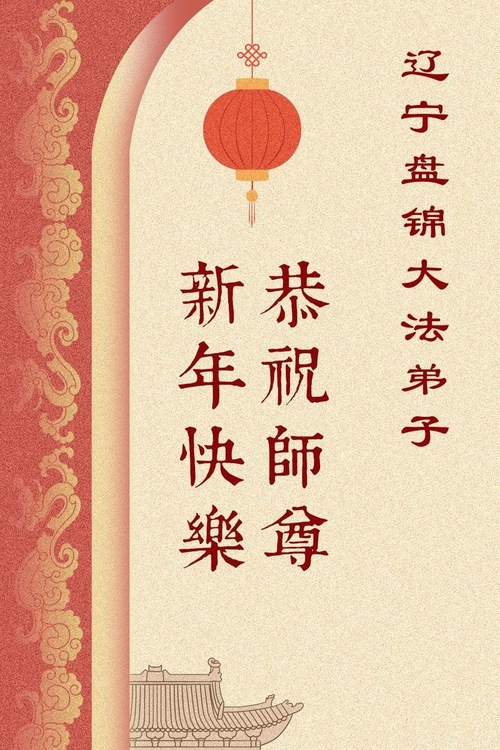 辽宁盘锦大法弟子
恭祝師尊
新年快樂